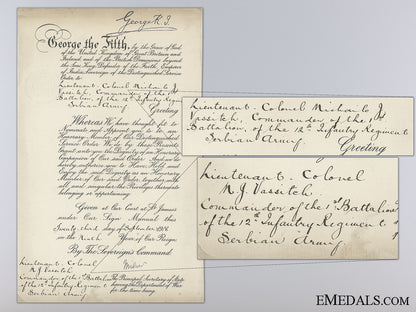 George R. I.
George the Fifth, by the Grace of God
of the United Kingdom of Great Britain and
Ireland and of the British Dominions beyond
the Seas King, Defender of the Faith, Emperor
of India, Sovereign of the Distinguished Service
Order, to
Lieutenant-Colonel Michailo J.
Vassitch, Commander of the 1st
Battalion, of the 12th Infantry Regiment
Serbian Army
Greeting
Whereas We have thought fit to
Nominate and Appoint you to be an
Honorary Member of Our Distinguished
Service Order We do by these Presents
Grant unto you the Dignity of an Honorary
Companion of Our said Order And we do
hereby authorize you to Have Hold and
Enjoy the said Dignity as an Honorary
Member of Our said Order together with
all and singular the Privileges thereunto
belonging or appertaining
Given at Our Court at St. James's
under Our Sign Manual this
Twenty third day of September 1916
in the Year of Our Reign
By The Sovereign's Command.
The Principal Secretary of State
having the Department of War
for the time being.
Lieutenant-Colonel
M. J. Vassitch
Commander of the 1st Battalion
of the 12th Infantry Regiment
Serbian Army
Lieutenant-Colonel Michailo J.
Vassitch, Commander of the 1st
Battalion, of the 12th Infantry Regiment
Serbian Army.
Greeting
Lieutenant-Colonel
M. J. Vassitch.
Commander of the 1st Battalion
of the 12th Infantry Regiment
Serbian Army
EMEDALS.COM